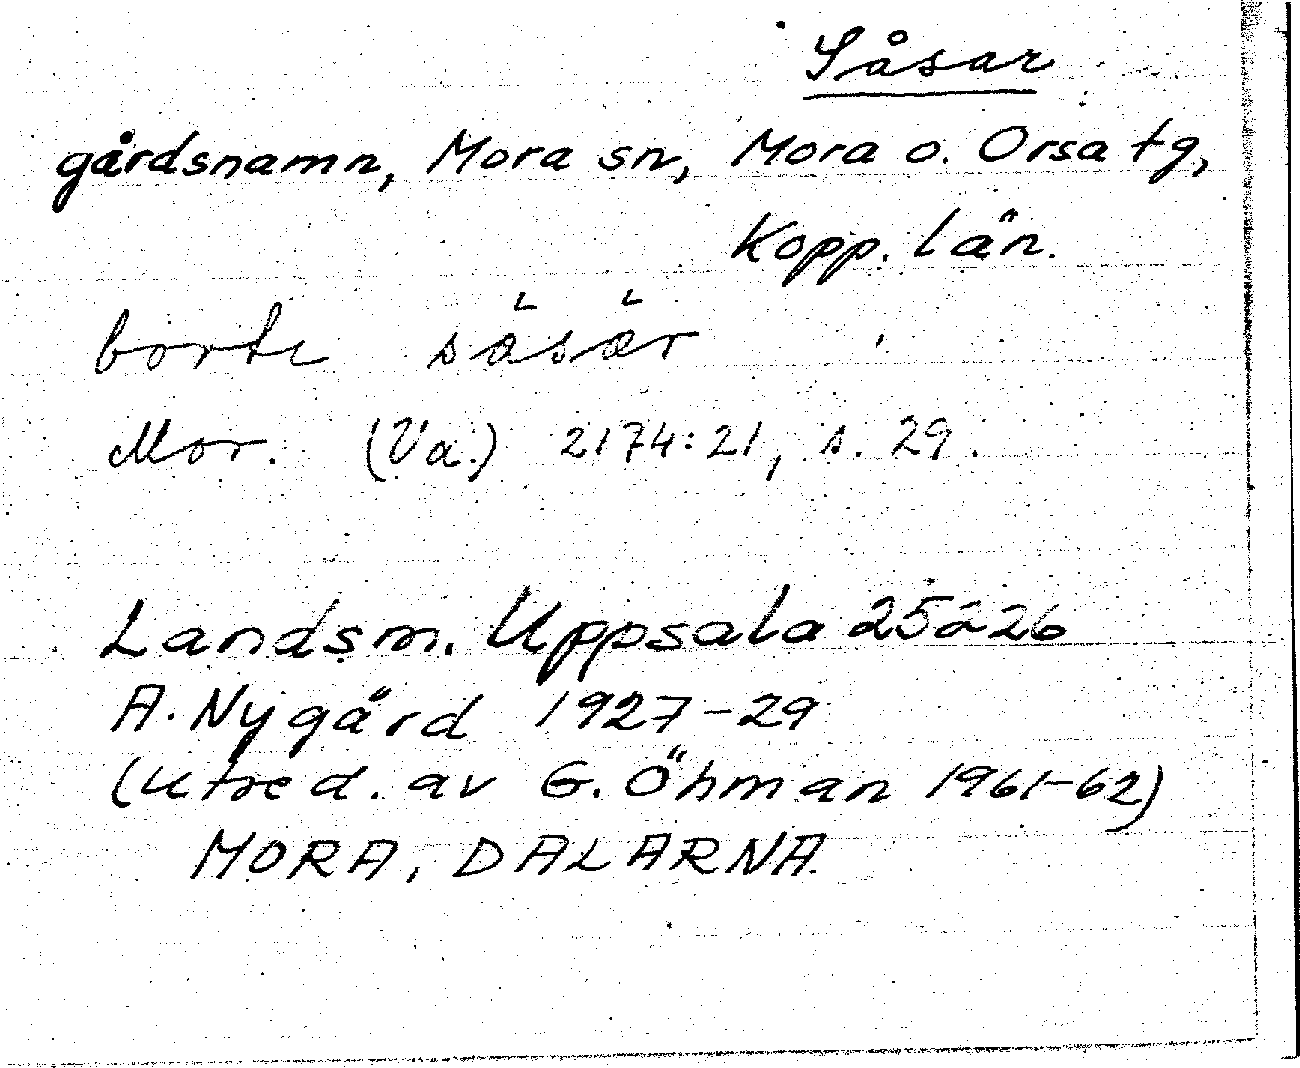 Såsar
gårdsnamn, Mora sn, Mora o. Orsa tg,
Kopp. län.
borte såsår
Mor. (Va.) 2174:21, s. 29.
Landsm. Uppsala 25226
A. Nygård 1927-29
(utred. av G. Öhman 1961-62)
MORA, DALARNA.